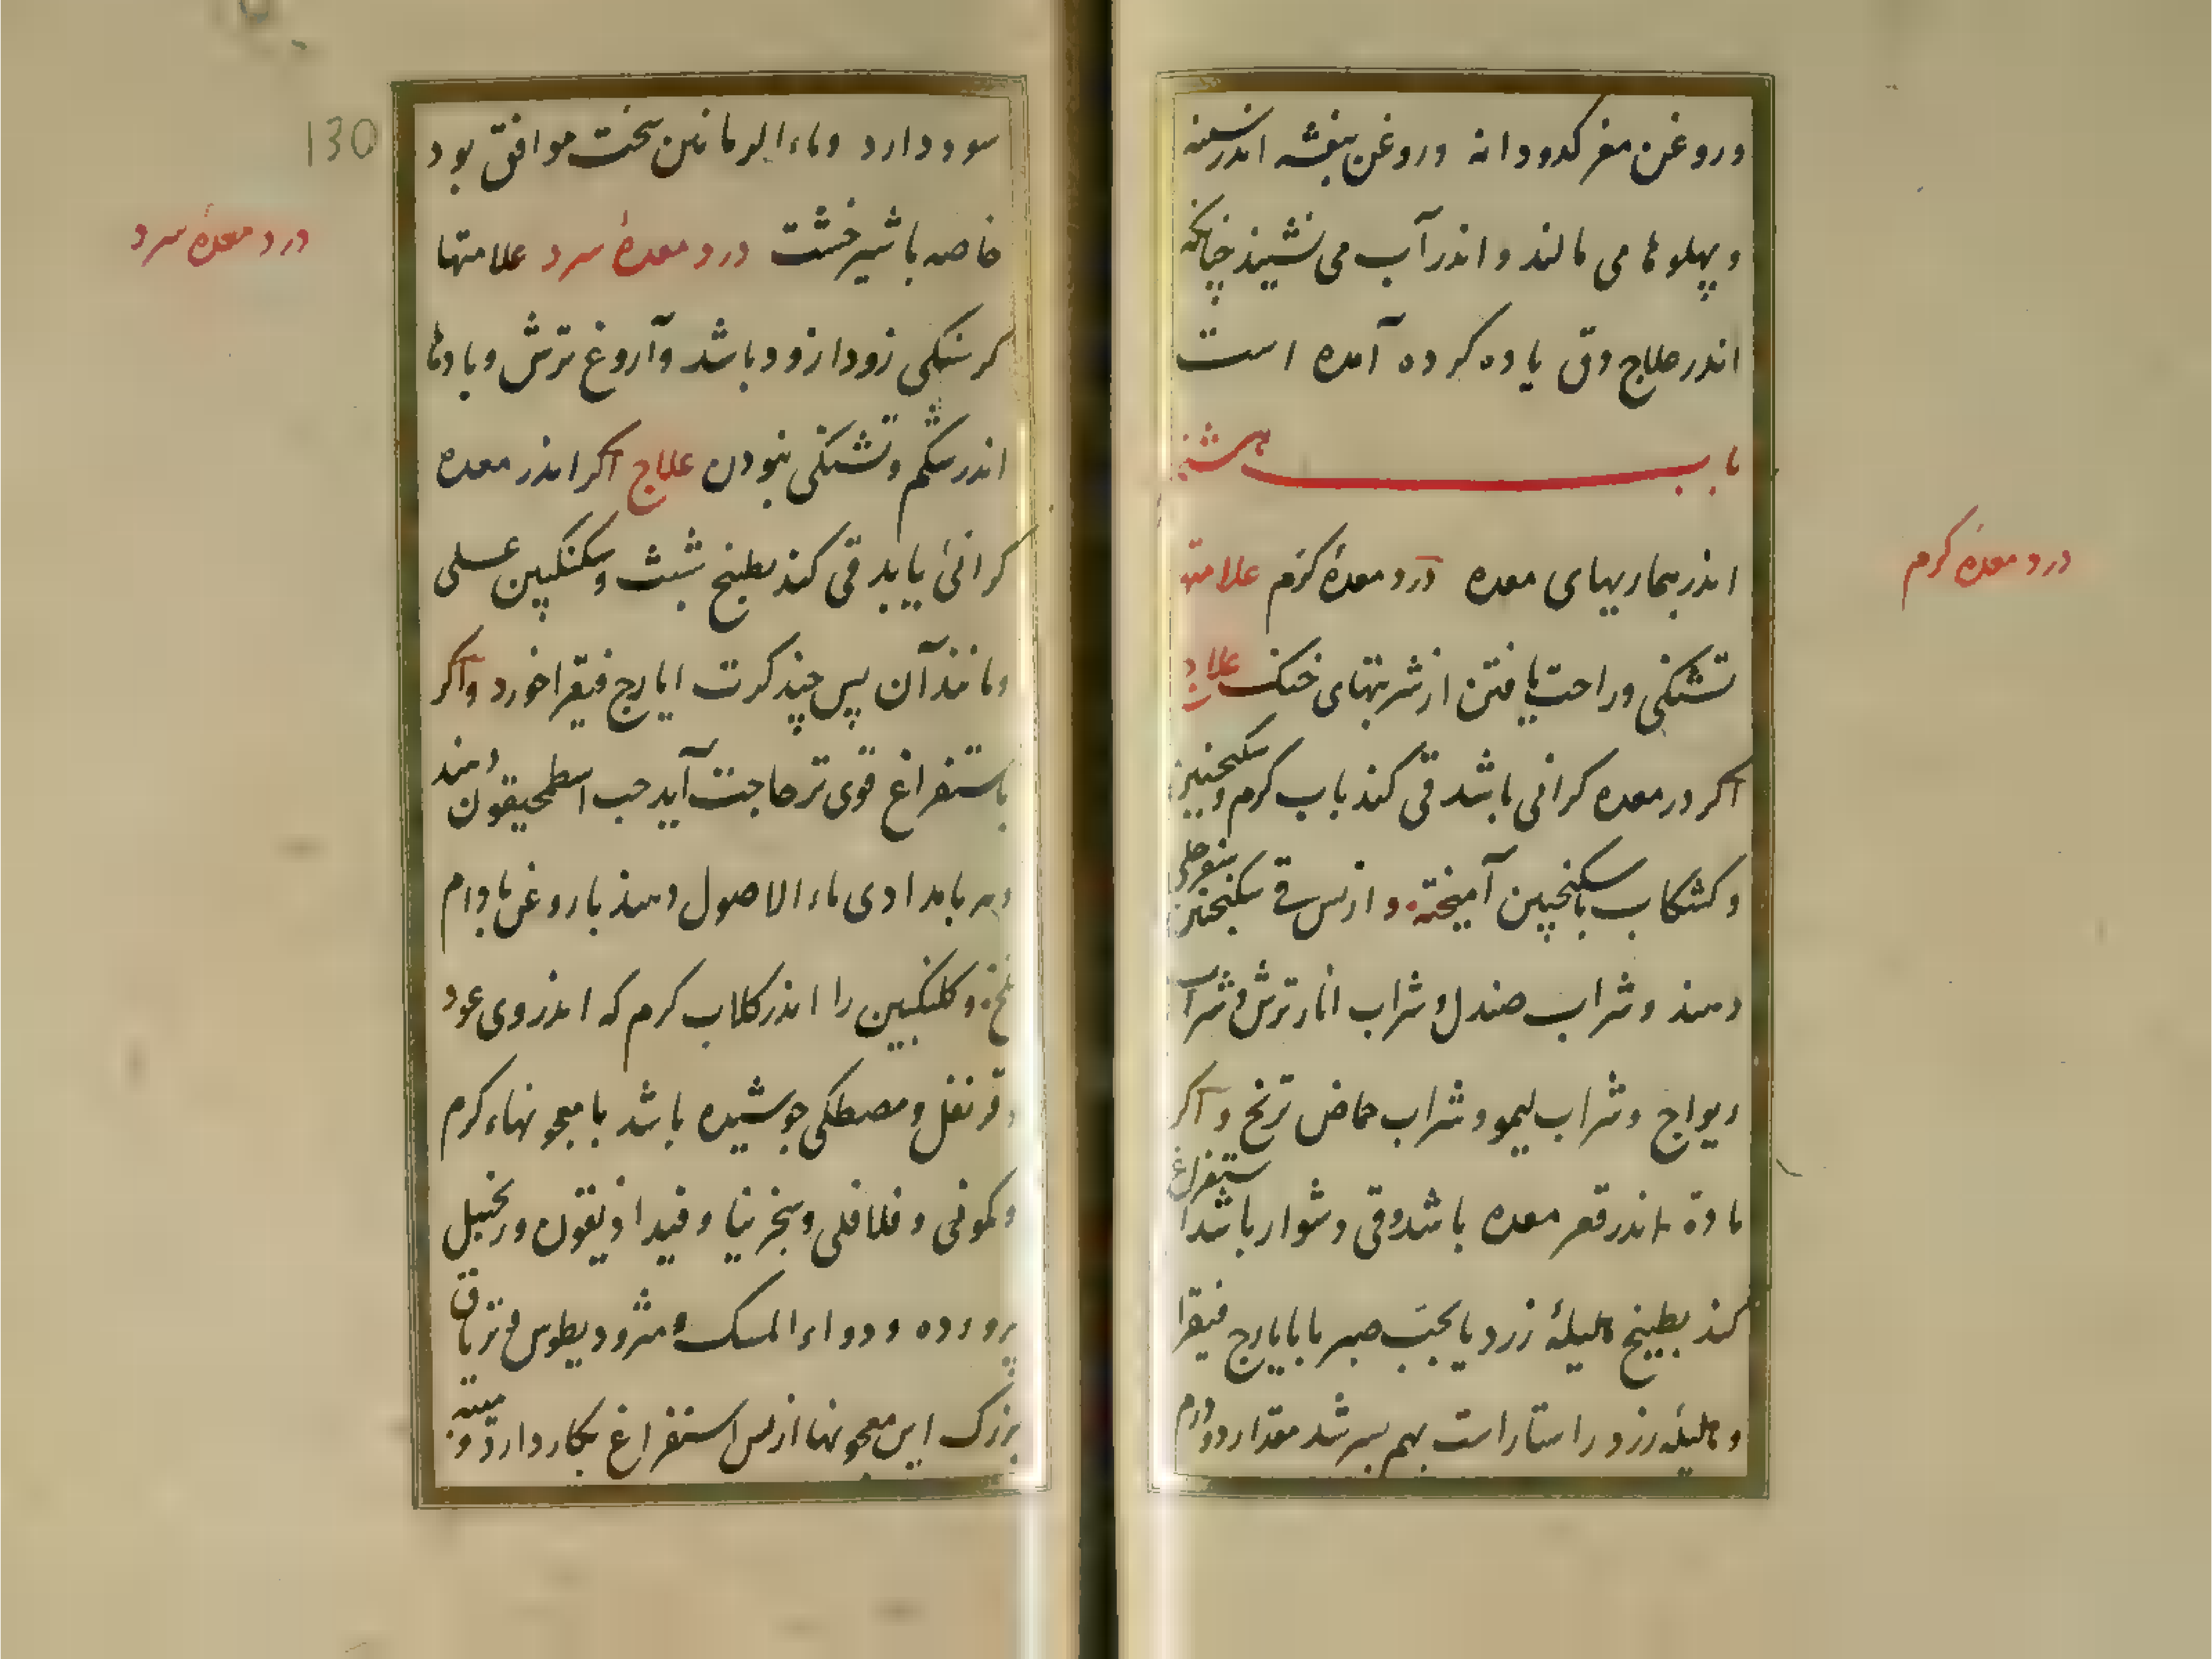 وروغن مغز كدودانه وروغن بنفشه اندرسینه
و پهلوها می مالند و اندر آب می نشیند چنانكه
اندر علاج دق یاده كرده آمده است
باب هشتم
اندر بیماریهای معده درد معدهٔ كرم علامتها
درد معدهٔ كرم
تشنكی و راحت یافتن از شربتهای خنك علاج
اكر در معده كرانی باشد قی كند باب كرم و سكنجبین
و كشكاب باسكنجبین آمیخته و از پس قی سكنجبین سفرجلی
دهند و شراب صندل و شراب انار ترش و شراب
ریواج و شراب لیمو و شراب حماض ترنج و اكر
مادة اندر قعر معده باشد و قی دشوار باشد استفراغ
كند بطبیخ هلیلهٔ زرد یا بحب صبر یا بایارج فیقرا
و هلیلهٔ زرد را ستار است بهم بسرشد مقدار دو درم
130
سود دارد و ماء الرمانین سخت موافق بود
خاصه با شیرخشت درد معدهٔ سرد علامتها
درد معدهٔ سرد
كرسنكی زود از زود باشد و آروغ ترش و بادها
اندر شكم و تشنكی نبودن علاج اكر اندر معده
كرانئ یابد قی كند بطبیخ شبث و سكنكبین عسلی
و مانند آن پس چند كرت ایارج فیقرا خورد و اكر
باستفراغ قوی تر حاجت آید حب اسطمحیقون دهند
و هر بامدادی ماء الاصول دهند با روغن بادام
تلخ و كلنكبین را اندر كلاب كرم كه اندر وی عود
و قرنفل و مصطكی جوشیده باشد با معجونهاء كرم
و كمونی و فلافلی و سجزنیا و فیداذیقون و زنجبیل
پرورده و دواء المسك و مثرودیطوس و تریاق
بزرك این معجونها از پس استفراغ بكار دارد و